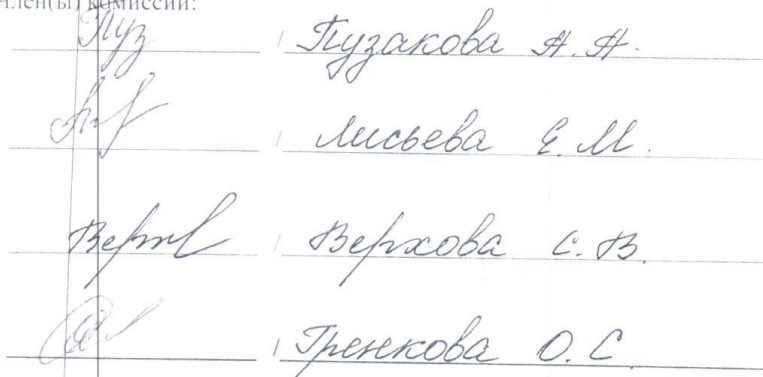 Член(ы) комиссии:
Пуз / Пузакова А. А.
/ Лисьева Е. М.
Верх / Верхова С. В.
/ Гренкова О. С.